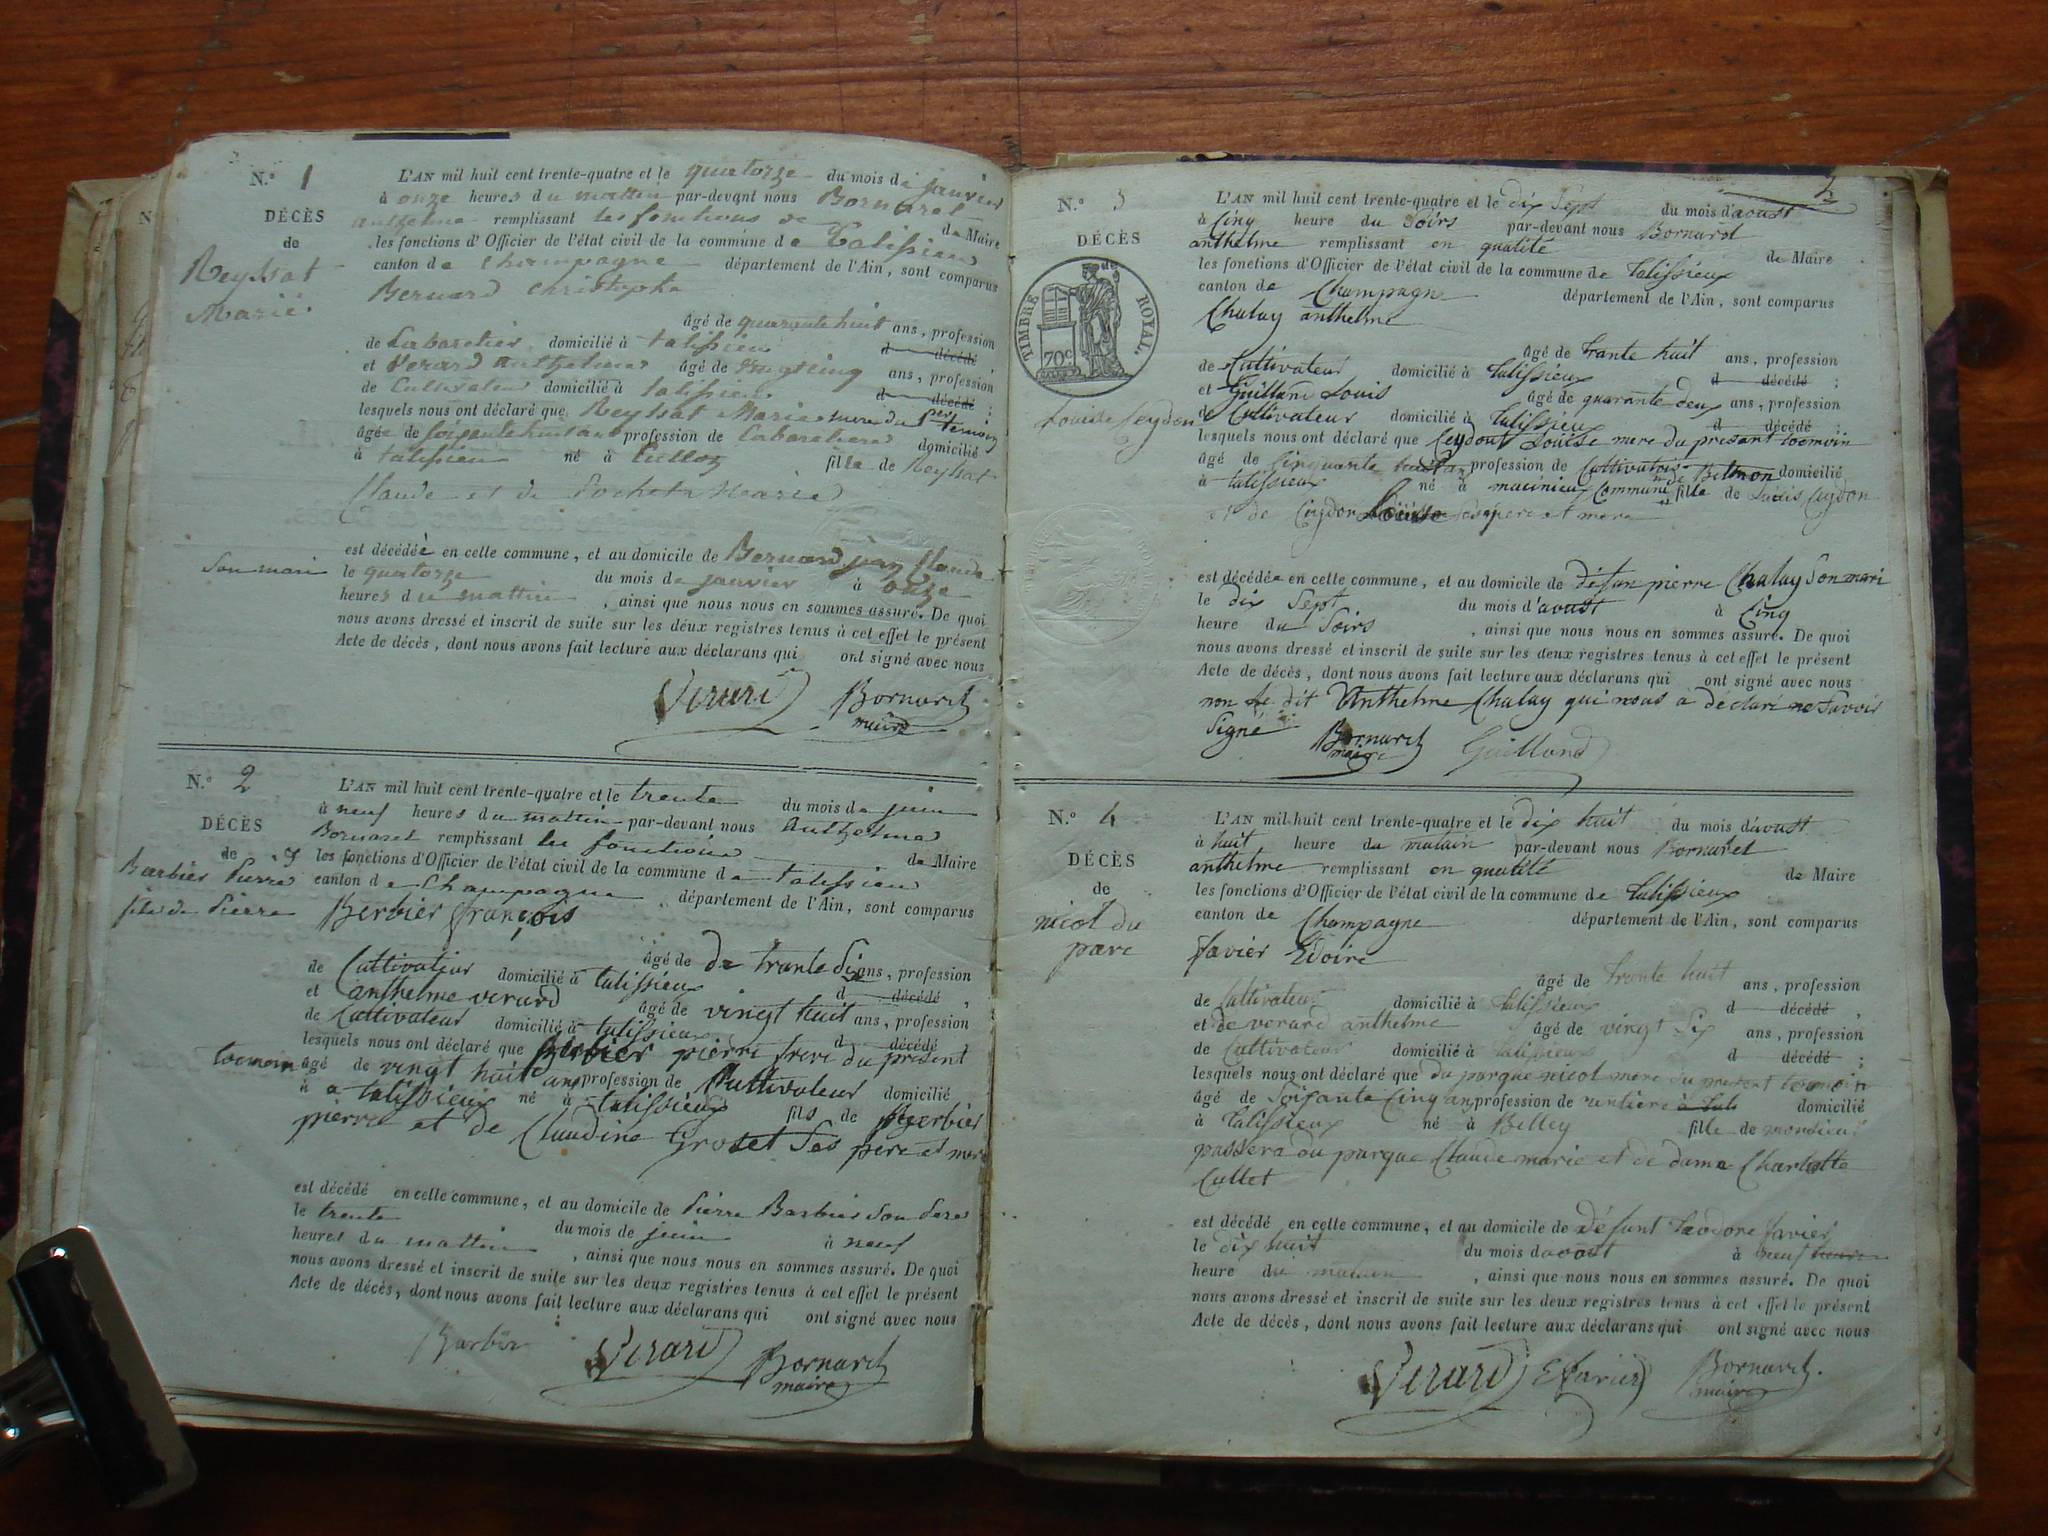 N.º 1
DÉCÈS
de
Reyssat
Marie
L'AN mil huit cent trente-quatre et le quatorze du mois de janvier
à onze heures du mattin par-devant nous Bornarel
anthelme remplissant les fonctions de de Maire
les fonctions d'Officier de l'état civil de la commune de Talissieu
canton de Champagne département de l'Ain, sont comparus
Bernard Christophe
âgé de quarante huit ans, profession
de Cabaretier domicilié à talissieu d décédé ;
et Verard anthelme âgé de vingt cinq ans, profession
de Cultivateur domicilié à talissieu d décédé ;
lesquels nous ont déclaré que Reyssat Marie mere du per temoin
âgée de soixante huit ans profession de Cabaretiere domicilié
à talissieu né à Culloz fille de Reyssat
Claude et de Pochet Marie
est décédée en celle commune, et au domicile de Bernard jean Claude
Son mari
le quatorze du mois de janvier à onze
heures du mattin , ainsi que nous nous en sommes assuré. De quoi
nous avons dressé et inscrit de suite sur les deux registres tenus à cet effet le présent
Acte de décès, dont nous avons fait lecture aux déclarans qui ont signé avec nous
Verard Bornarel
maire
N.º 2
DÉCÈS
de
Barbier Pierre
fils de Pierre
L'AN mil huit cent trente-quatre et le trente du mois de juin
à neuf heures du mattin par-devant nous Anthelme
Bornarel remplissant les fonctions de Maire
les fonctions d'Officier de l'état civil de la commune de talissieu
canton de Champagne département de l'Ain, sont comparus
Berbier françois
âgé de de trante Six ans, profession
de Cultivateur domicilié à talissieux d décédé ,
et anthelme verard âgé de vingt huit ans, profession
de Cultivateur domicilié à talissieux d décédé
lesquels nous ont déclaré que Berbier pierre frere du présent
toemoin
âgé de vingt huit ans profession de Cultivateur domicilié
à a talissieux né à talissieux fils de Berbier
pierre et de Claudine Groset Ses père et mere
est décédé en celle commune, et au domicile de Pierre Barbier son Pere
le trente du mois de juin à neuf
heures du mattin , ainsi que nous nous en sommes assuré. De quoi
nous avons dressé et inscrit de suite sur les deux registres tenus à cet effet le présent
Acte de décès, dont nous avons fait lecture aux déclarans qui ont signé avec nous
Barbier Verard Bornarel
maire
N.º 3
DÉCÈS
de
TIMBRE ROYAL.
70c
Louise Ceydon
L'AN mil huit cent trente-quatre et le dix Sept du mois d'aoust
à Cinq heure du Soirs par-devant nous Bornarel
anthelme remplissant en qualité de Maire
les fonctions d'Officier de l'état civil de la commune de talissieux
canton de Champagne département de l'Ain, sont comparus
Chalay anthelme
âgé de trante huit ans, profession
de Cultivateur domicilié à talissieux d décédé ;
et Guilland Louis âgé de quarante deux ans, profession
de Cultivateur domicilié à talissieux d décédé ;
lesquels nous ont déclaré que Ceydont Louise mere du présant toemoin
âgé de Cinquante huit an profession de Cultivatris domicilié
à talissieux né à masinieux Commune de Belmon fille de Louis Ceydon
et de Ceydon Louise Ses pere et mere
est décédée en celle commune, et au domicile de défan pierre Chalay Son mari
le dix Sept du mois d'aoust à Cinq
heure du Soirs , ainsi que nous nous en sommes assuré. De quoi
nous avons dressé et inscrit de suite sur les deux registres tenus à cet effet le présent
Acte de décès, dont nous avons fait lecture aux déclarans qui ont signé avec nous
non le dit Anthelme Chalay qui nous a déclaré ne Savoir
Signé
Bornarel Guilland
maire
N.º 4
DÉCÈS
de
nicol du
parc
L'AN mil huit cent trente-quatre et le dix huit du mois d'aoust
à huit heure du matain par-devant nous Bornarel
anthelme remplissant en qualité de Maire
les fonctions d'Officier de l'état civil de la commune de talissieux
canton de Champagne département de l'Ain, sont comparus
favier Edoire
âgé de trante huit ans, profession
de Cultivateur domicilié à talissieux d décédé ;
et de verard anthelme âgé de vingt Six ans, profession
de Cultivateur domicilié à talissieux d décédé ;
lesquels nous ont déclaré que du parque nicol mere du present temoin
âgé de Soixante Cinq an profession de rentiere domicilié
à talissieux né à Belley fille de monsieur
passera du parque Claude marie et de dame Charlotte
Cullet
est décédé en celle commune, et au domicile de défunt teodore favier
le dix huit du mois d aoust à neuf heure
heure du matain , ainsi que nous nous en sommes assuré. De quoi
nous avons dressé et inscrit de suite sur les deux registres tenus à cet effet le présent
Acte de décès, dont nous avons fait lecture aux déclarans qui ont signé avec nous
Verard E favier Bornarel.
maire